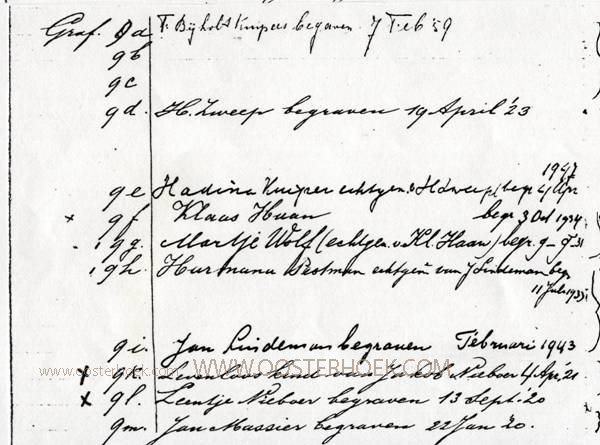 Graf. 9a T. Bijholt Kuipers begraven 7 Feb '59
9b
9c
9d. H. Zweep begraven 19 April '23
1947
9e Hadina Kuiper echtgen. v. H. Zweep begr. 4 Apr
x 9f Klaas Haan begr. 3 Oct 1934
9g. Martje Wolf (echtgen. v. Kl. Haan) begr. 9-9-31
9h. Harmanna Postman echtgen van J Lindeman begr
11 Juli 1935
9i. Jan Lindeman begraven Februari 1943
x 9k. Levenloos kind van Jakob Nieboer 4 Apr. 21
www.oosterhoek.com WWW.OOSTERHOEK.COM
x 9l. Leentje Nieboer begraven 13 Sept. 20
9m. Jan Massier begraven 22 Jan 20.